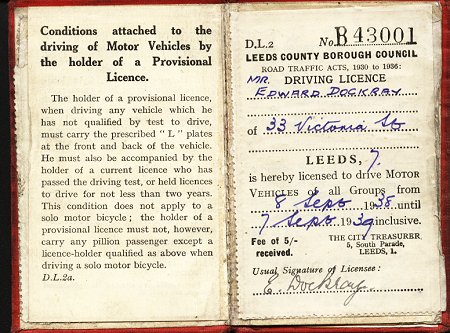 Conditions attached to the
driving of Motor Vehicles by
the holder of a Provisional
Licence.
The holder of a provisional licence,
when driving any vehicle which he
has not qualified by test to drive,
must carry the prescribed "L" plates
at the front and back of the vehicle.
He must also be accompanied by the
holder of a current licence who has
passed the driving test, or held licences
to drive for not less than two years.
This condition does not apply to a
solo motor bicycle; the holder of a
provisional licence must not, however,
carry any pillion passenger except a
licence-holder qualified as above when
driving a solo motor bicycle.
D.L.2a.
D.L.2 No. B 43001
LEEDS COUNTY BOROUGH COUNCIL
ROAD TRAFFIC ACTS, 1930 to 1936:
MR. DRIVING LICENCE
EDWARD DOCKRAY
of 33 Victoria St
LEEDS, 7.
is hereby licensed to drive MOTOR
VEHICLES of all Groups from
8 Sept 1938 until
7 Sept 1939 inclusive.
Fee of 5/-
received.
THE CITY TREASURER
5, South Parade,
LEEDS, 1.
Usual Signature of Licensee:
E Dockray